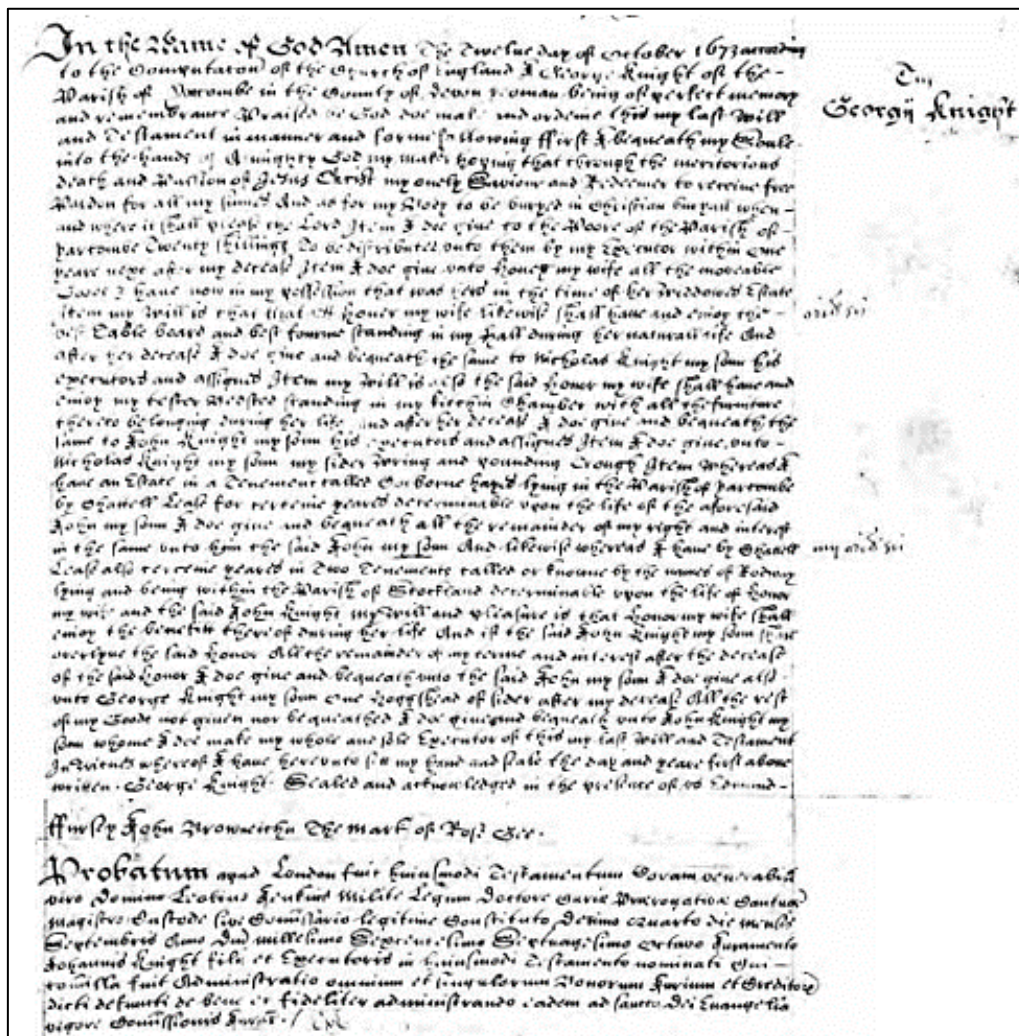 In the Name of God Amen The Twelve day of October 1673 according
to the Computaton of the Church of England I George Knight of the
Parish of Yarcombe in the County of Devon yeoman being of perfect memory
and remembrance Praised be God doe make and ordeine this my last Will
and Testament in manner and forme following ffirst I bequeath my Soule
into the hands of Almighty God my maker hoping that through the meritorious
death and Passion of Jesus Christ my onely Saviour and Redeemer to receive free
Pardon for all my sinnes And as for my Body to be buryed in Christian buryall when
and where it shall please the Lord Item I doe give to the Poore of the Parish of
Yarcombe Twenty shillings To be distributed unto them by my Executor within One
yeare next after my decease Item I doe give unto Honor my wife all the moveable
Goods I have now in my possession that was hers in the time of her Widdowes Estate
Item my Will is that Honor my wife likewise shall have and enjoy the
best Table board and best fourme standing in my Hall during her naturall life And
after her decease I doe give and bequeath the same to Nicholas Knight my sonn his
executors and assignes Item my Will is also the said Honor my wife shall have and
enjoy my tester Beested standing in my kitchin Chamber with all the furniture
thereto belonging during her life and after her decease I doe give and bequeath the
same to John Knight my sonn his executors and assignes Item I doe give unto
Nicholas Knight my sonn my sider Wring and pounding Trough Item Whereas I
have an Estate in a Tenement called hayes lying in the Parish of Yarcombe
by Chattell Lease for certeine yeares determinable upon the life of the aforesaid
John my sonn I doe give and bequeath all the remainder of my right and interest
in the same unto him the said John my sonn And likewise whereas I have by Chattell
Lease also certeine yeares in Two Tenements called or knowne by the names of Rodway
lying and being within the Parish of Stockland determinable upon the life of Honor
my wife and the said John Knight my Will and pleasure is that Honor my wife shall
enjoy the benefitt thereof during her life And if the said John Knight my sonn shall
overlyve the said Honor All the remainder of my terme and interest after the decease
of the said Honor I doe give and bequeath unto the said John my sonn I doe give also
unto George Knight my sonn One Hoggshead of sider after my decease All the rest
of my Goods not given nor bequeathed I doe give and bequeath unto John Knight my
sonn whome I doe make my whole and sole Executor of this my last Will and Testament
In Witnes whereof I have hereunto sett my hand and seale the day and yeare first above
written George Knight Sealed and acknowledged in the presence of us Edmund
ffursey John The mark of Gee
Probatum apud London fuit huiusmodi Testamentum Coram venerabili
viro Domino Leolino Jenkins Milite Legum Doctore Curiæ Prærogativæ Cantuar
Magistro Custode sive Commissario legitime Constituto Decimo Quarto die mensis
Septembris Anno Dni millesimo Sexcentesimo Septuagesimo Octavo Juramento
Johannis Knight filii et Executoris in huiusmodi Testamento nominati Cui
comissa fuit Administratio omnium et singulorum Bonorum Jurium et Creditorum
dicti defuncti de bene et fideliter administrando eadem ad sancta Dei Evangelia
vigore Commissionis Jurat
Georgii Knight